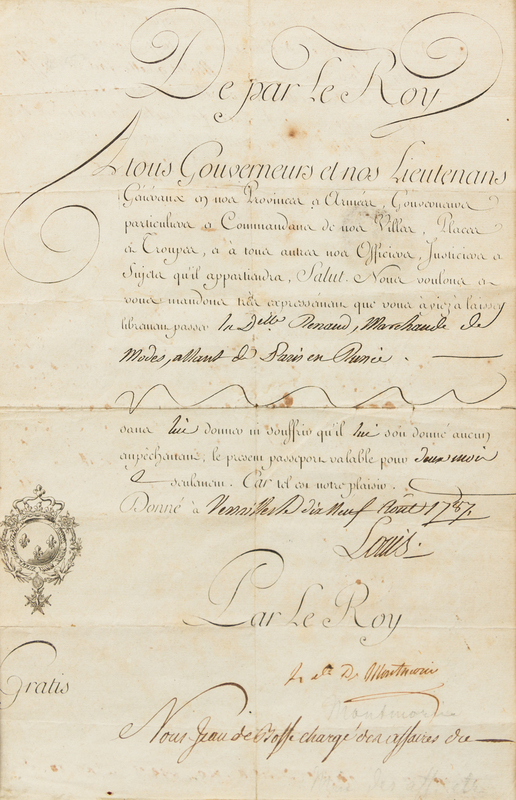 De par Le Roy
A tous Gouverneurs et nos Lieutenans
Généraux en nos Provinces et Armées, Gouverneurs
particuliers et Commandans de nos Villes, Places
et Troupes, et à tous autres nos Officiers, Justiciers et
Sujets qu'il appartiendra, Salut. Nous voulons et
vous mandons très expressément que vous ayiez à laisser
librement passer la Dlle Renaud, Marchande de
Modes, allant de Paris en Russie.
sans lui donner ni souffrir qu'il lui soit donné aucun
empêchement, le present passeport valable pour deux mois
seulement. Car tel est notre plaisir.
Donné à Versailles le dix neuf Août 1787.
Louis
Par Le Roy
Le cte De Montmorin
Gratis
Montmorin
Nous Jean de chargé des affaires de